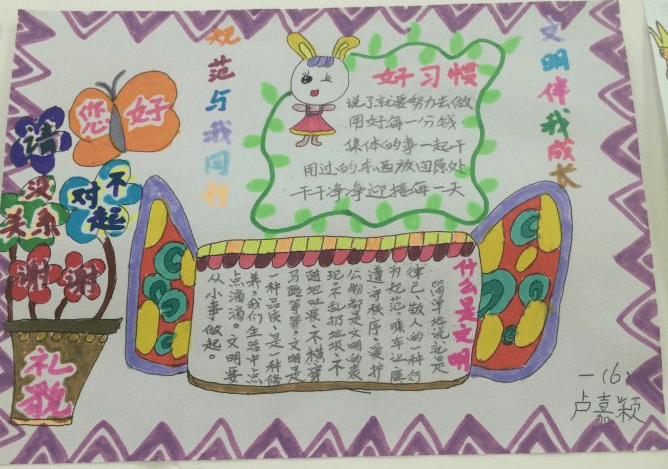 规范与我同行
文明伴我成长
好习惯
说了就要努力去做
用好每一分钱
集体的事一起干
用过的东西放回原处
干干净净迎接每一天
您好
请
没关系
对不起
谢谢
礼貌
什么是文明
简单地说就是
律己、敬人的一种行
为规范,乘车让座
遵守秩序,爱护
公物都是文明的表
现,不乱扔垃圾,不
随地吐痰,不横穿
马路等等,文明是
一种品质,是一种修
养,我们生活中点
点滴滴。文明要
从小事做起。
一(6)
卢嘉颖